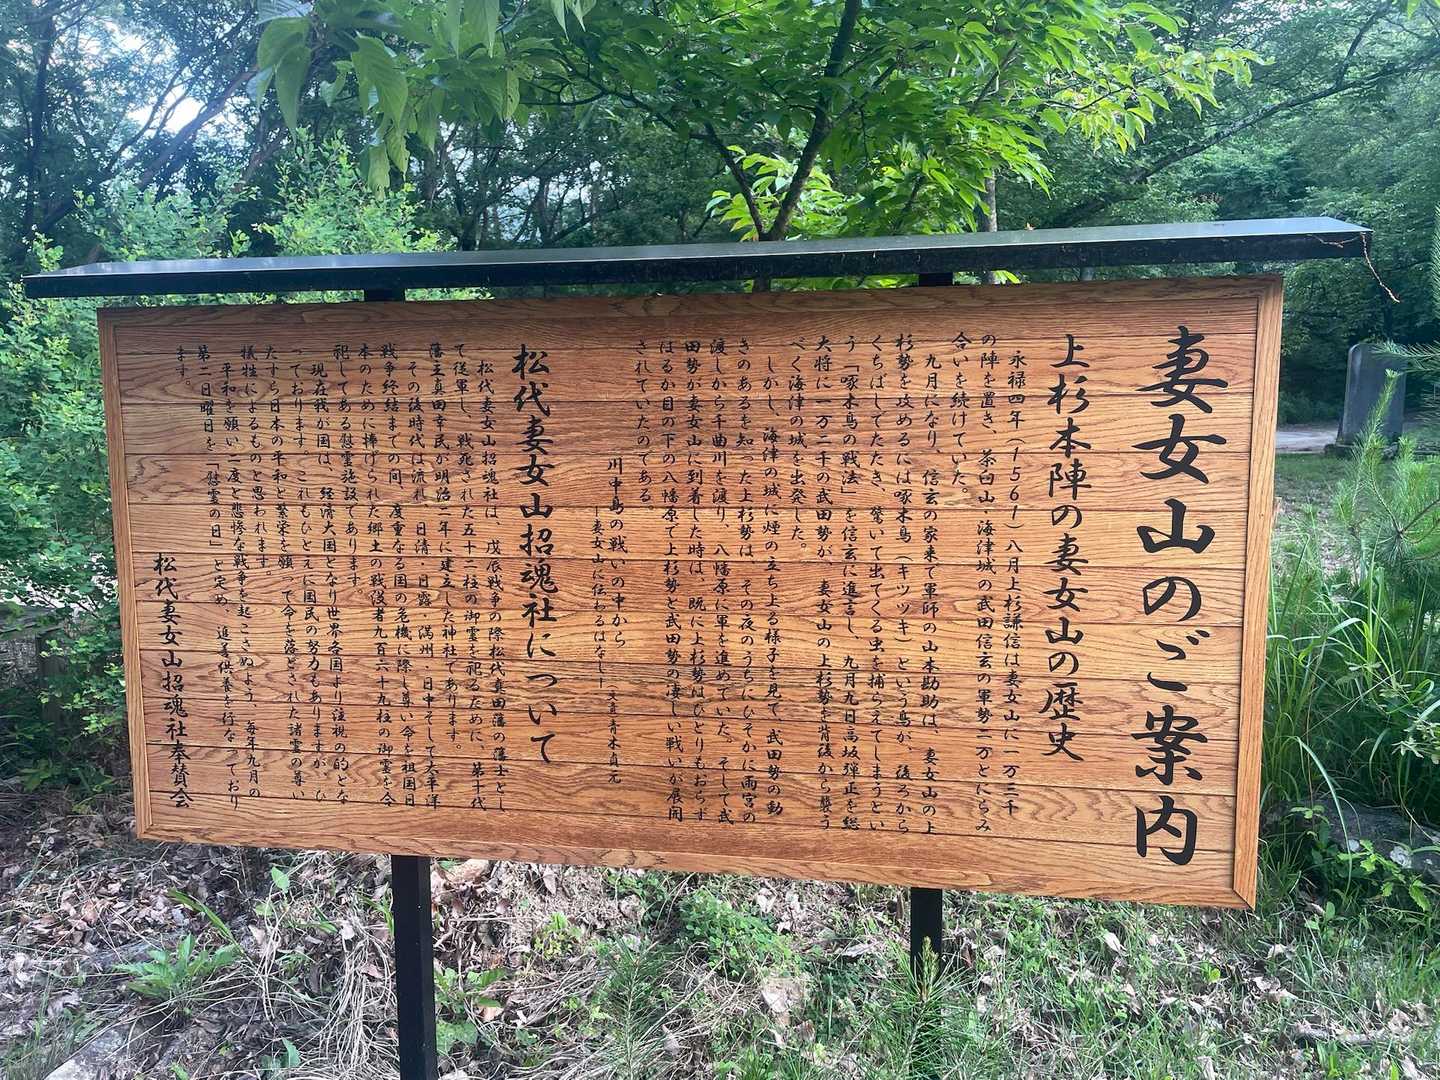 妻女山のご案内
上杉本陣の妻女山の歴史
永禄四年(1561)八月上杉謙信は妻女山に一万三千
の陣を置き、茶臼山・海津城の武田信玄の軍勢二万とにらみ
合いを続けていた。
九月になり、信玄の家来で軍師の山本勘助は、妻女山の上
杉勢を攻めるには啄木鳥(キツツキ)という鳥が、後ろから
くちばしでたたき、驚いて出てくる虫を捕らえてしまうとい
う「啄木鳥の戦法」を信玄に進言し、九月九日高坂弾正を総
大将に一万二千の武田勢が、妻女山の上杉勢を背後から襲う
べく海津の城を出発した。
しかし、海津の城に煙の立ち上る様子を見て、武田勢の動
きのあるを知った上杉勢は、その夜のうちにひそかに雨宮の
渡しから千曲川を渡り、八幡原に軍を進めていた。そして武
田勢が妻女山に到着した時は、既に上杉勢はひとりもおらず
はるか目の下の八幡原で上杉勢と武田勢の凄しい戦いが展開
されていたのである。
川中島の戦いの中から
―妻女山に伝わるはなし― 文責 青木貞元
松代妻女山招魂社について
松代妻女山招魂社は、戊辰戦争の際松代真田藩の藩士とし
て従軍し、戦死された五十二柱の御霊を祀るために、第十代
藩主真田幸民が明治二年に建立した神社であります。
その後時代は流れ、日清・日露・満州・日中そして太平洋
戦争終結までの間、度重なる国の危機に際し尊い命を祖国日
本のために捧げられた郷土の戦没者九百六十九柱の御霊を合
祀してある慰霊施設であります。
現在我が国は、経済大国となり世界各国より注視の的とな
っております。これもひとえに国民の努力もありますが、ひ
たすら日本の平和と繁栄を願って命を落とされた諸霊の尊い
犠牲によるものと思われます。
平和を願い二度と悲惨な戦争を起こさぬよう、毎年九月の
第二日曜日を「慰霊の日」と定め、追善供養を行なっており
ます。
松代妻女山招魂社奉賛会